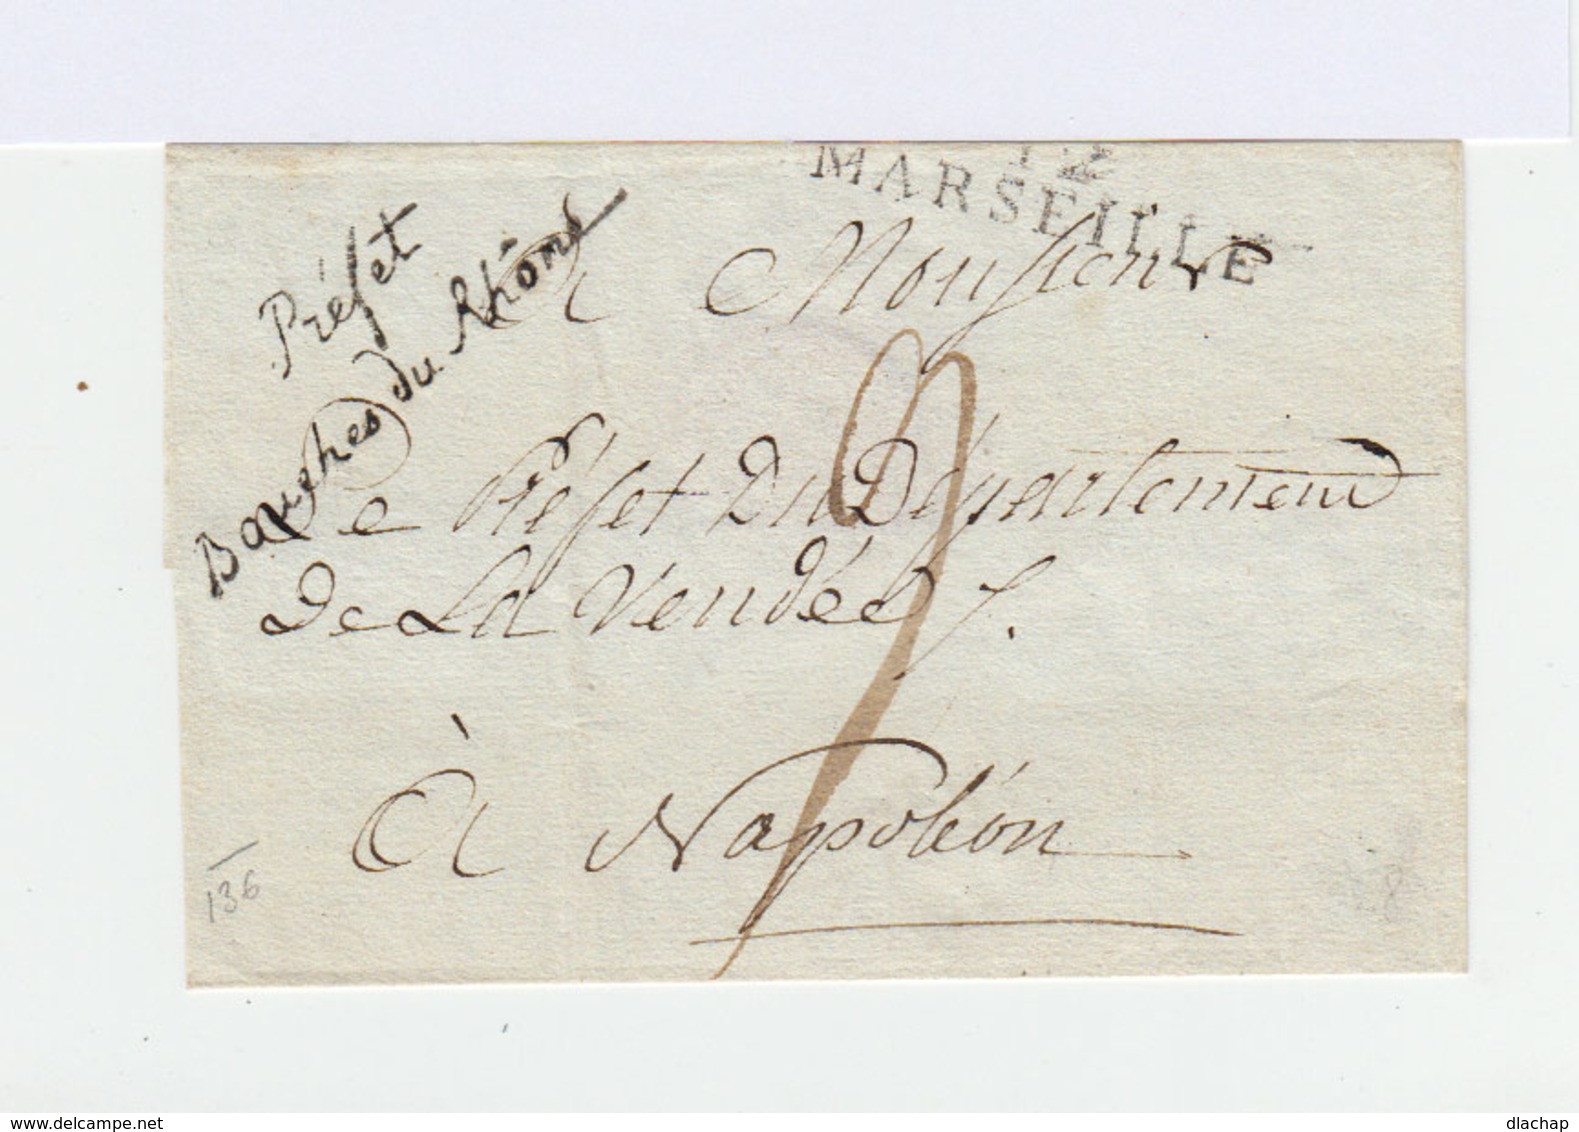 12
MARSEILLE
Préfet
Bouches du Rhône
A Monsieur
Le Préfet Du Département
De La Vendée
À Napoléon
136
www.delcampe.net
dlachap